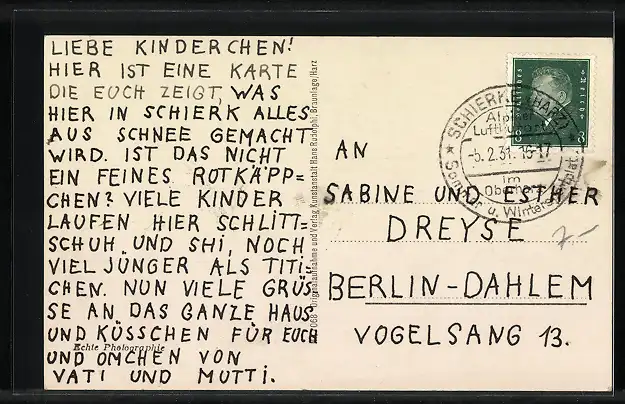 LIEBE KINDERCHEN!
HIER IST EINE KARTE
DIE EUCH ZEIGT, WAS
HIER IN SCHIERK ALLES
AUS SCHNEE GEMACHT
WIRD. IST DAS NICHT
EIN FEINES ROTKÄPP=
CHEN? VIELE KINDER
LAUFEN HIER SCHLITT=
SCHUH UND SHI, NOCH
VIEL JÜNGER ALS TITI=
CHEN. NUN VIELE GRÜS
SE AN DAS GANZE HAUS
UND KÜSSCHEN FÜR EUCH
Echte Photographie
UND OMCHEN VON
VATI UND MUTTI.
Originalaufnahme und Verlag Kunstanstalt Hans Rudolphi, Braunlage/Harz
SCHIERKE (HARZ)
-5.2.31.16-17
im
Oberharz
Sommer u. Winter
8
AN
SABINE UND ESTHER
DREYSE
BERLIN-DAHLEM
VOGELSANG 13.
7.-